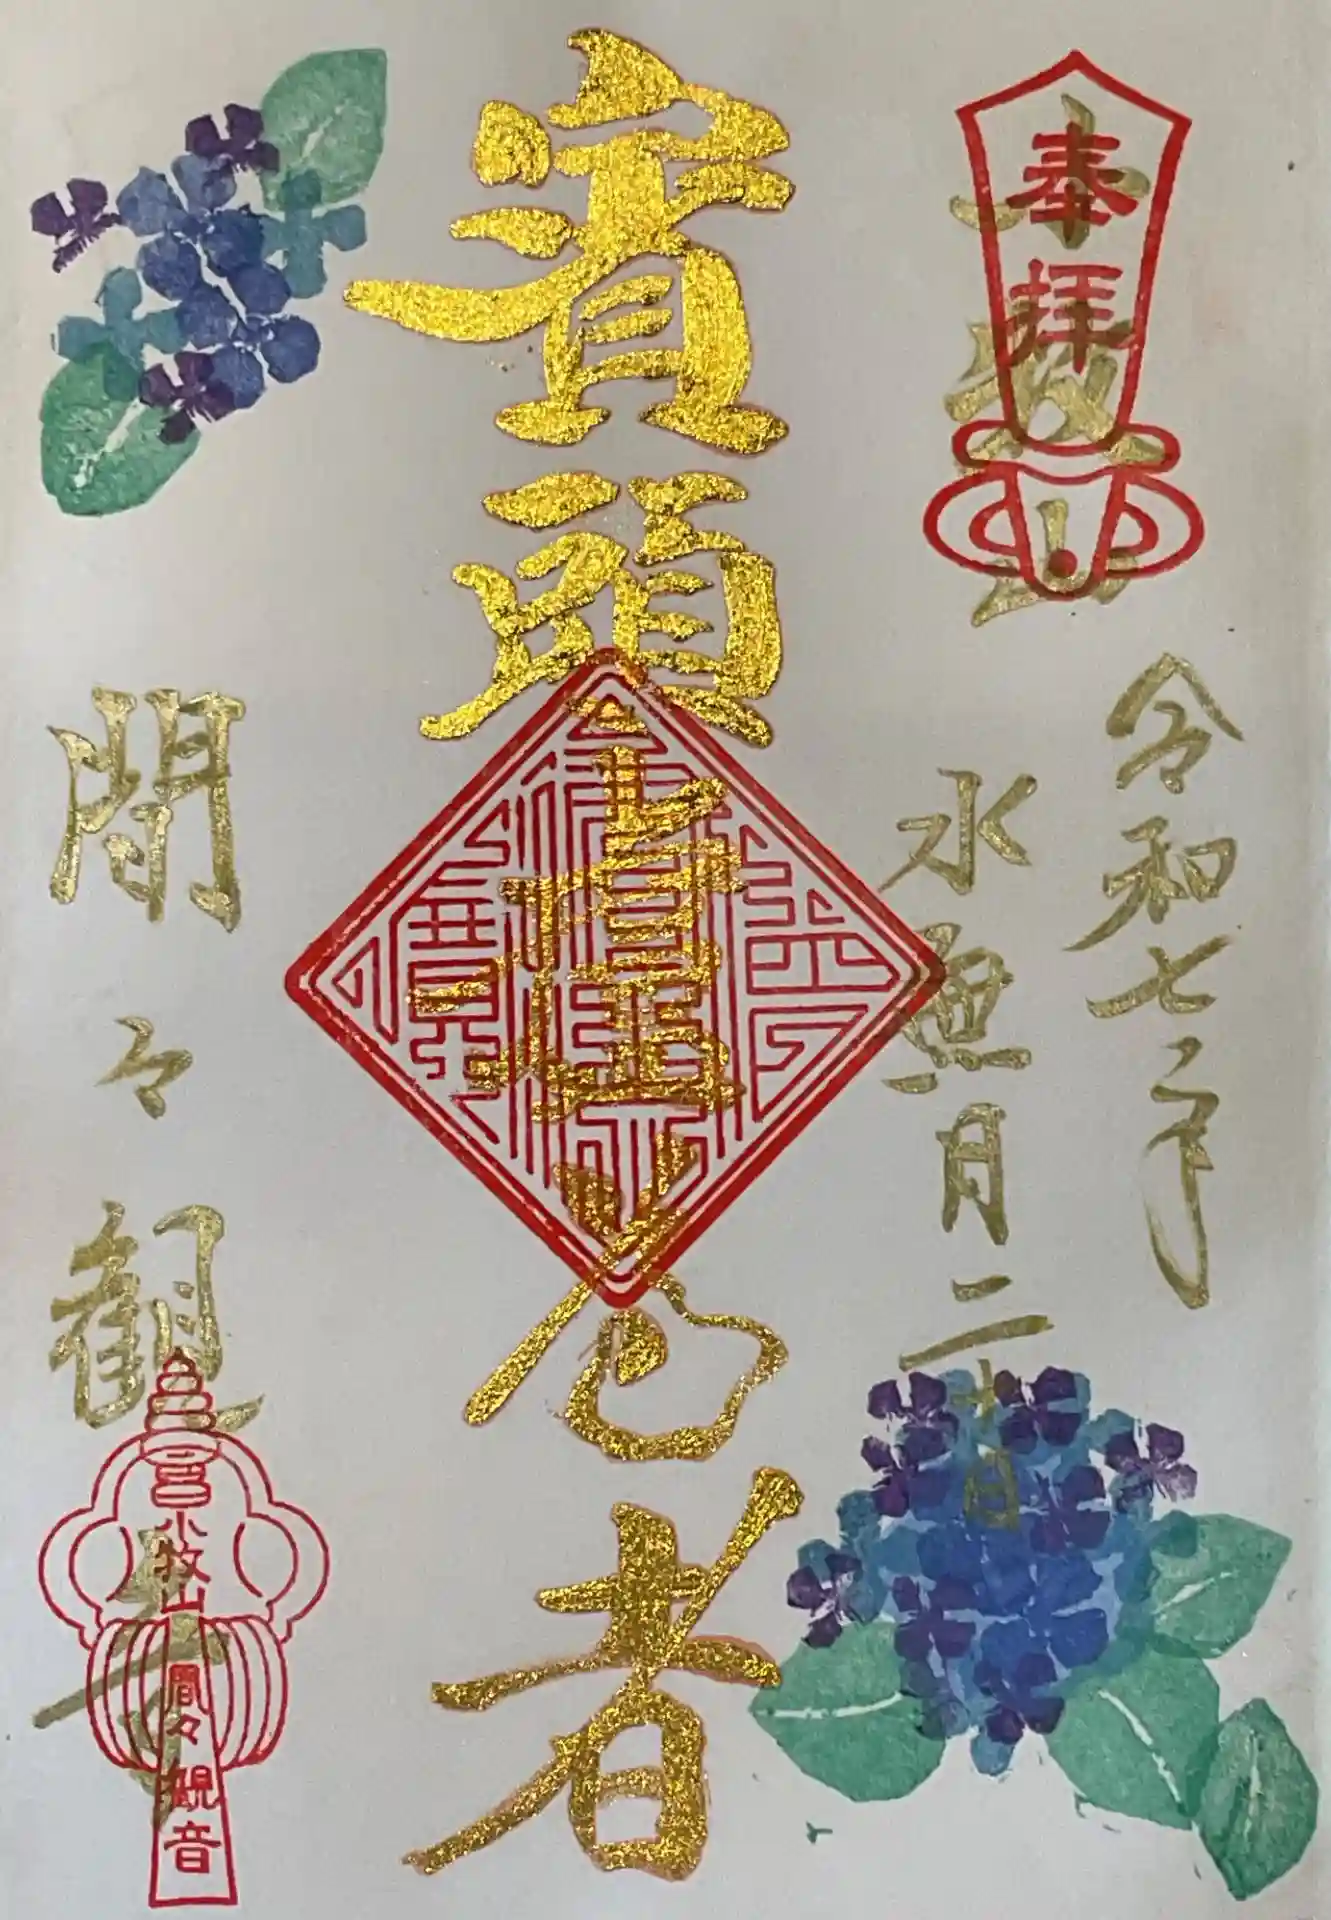 奉拝
小牧山
令和七年
水無月二十日
賓頭盧尊者
間々観音
小牧山
間々観音